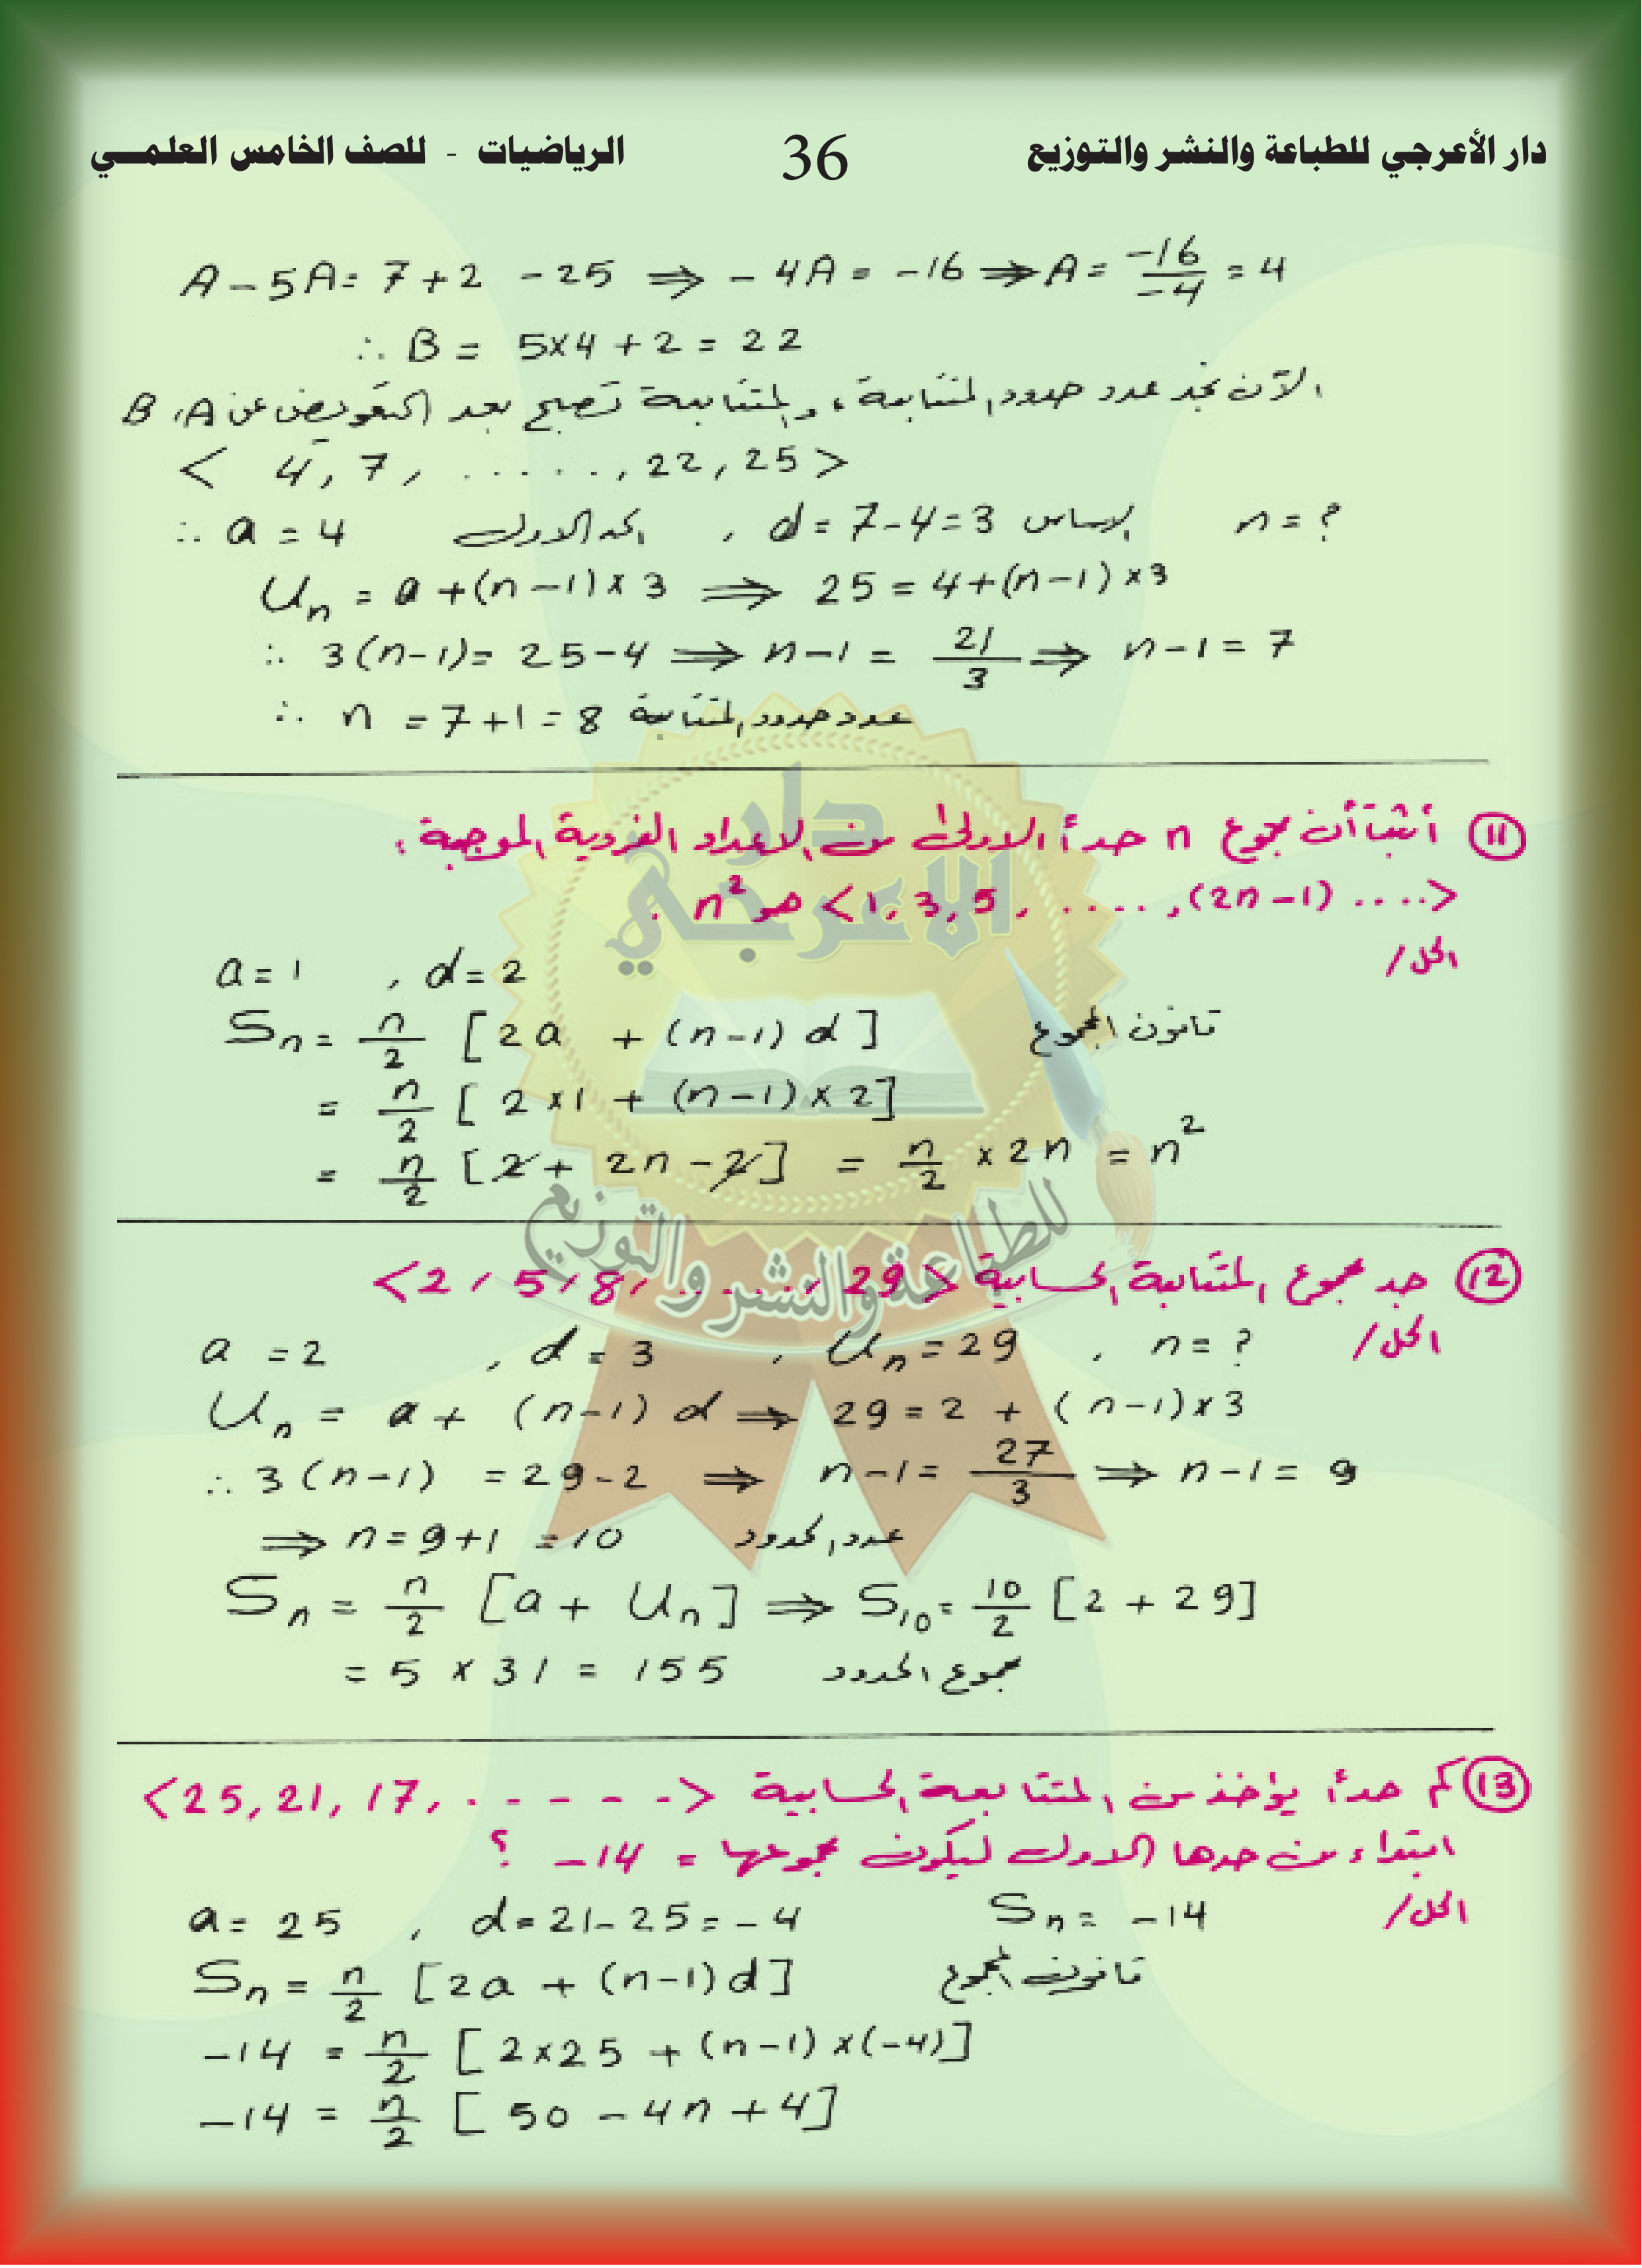 دار الأعرجي للطباعة والنشر والتوزيع 36 الرياضيات - للصف الخامس العلمـــي
A - 5A = 7 + 2 - 25 ⇒ - 4A = -16 ⇒ A = -16/-4 = 4
∴ B = 5×4 + 2 = 22
الآن نجد عدد حدود المتتابعة، والمتتابعة تصبح بعد التعويض عن B ،A
< 4, 7, ....., 22, 25 >
∴ a = 4 الحد الاول , d = 7-4=3 الاساس n = ?
Un = a + (n-1)×3 ⇒ 25 = 4+(n-1)×3
∴ 3(n-1) = 25-4 ⇒ n-1 = 21/3 ⇒ n-1 = 7
∴ n = 7+1 = 8 عدد حدود المتتابعة
⑪ أثبت أن مجموع n حداً الاولى من الاعداد الفردية الموجبة:
<1, 3, 5, ....., (2n-1) ....> هو n² .
الحل/
a = 1 , d = 2
Sn = n/2 [2a + (n-1) d] قانون المجموع
= n/2 [2×1 + (n-1)×2]
= n/2 [2 + 2n - 2] = n/2 × 2n = n²
دار
الاعرجي
للطباعة والنشر والتوزيع
⑫ جد مجموع المتتابعة الحسابية <2, 5, 8, ....., 29>
الحل/
a = 2 , d = 3 , Un = 29 , n = ?
Un = a + (n-1) d ⇒ 29 = 2 + (n-1)×3
∴ 3(n-1) = 29-2 ⇒ n-1 = 27/3 ⇒ n-1 = 9
⇒ n = 9+1 = 10 عدد الحدود
Sn = n/2 [a + Un] ⇒ S10 = 10/2 [2 + 29]
= 5 × 31 = 155 مجموع الحدود
⑬ كم حداً يؤخذ من المتتابعة الحسابية <25, 21, 17, . - - - .>
ابتداء من حدها الاول ليكون مجموعها = -14 ؟
الحل/
a = 25 , d = 21-25 = -4 Sn = -14
Sn = n/2 [2a + (n-1)d] قانون المجموع
-14 = n/2 [2×25 + (n-1)×(-4)]
-14 = n/2 [50 - 4n + 4]